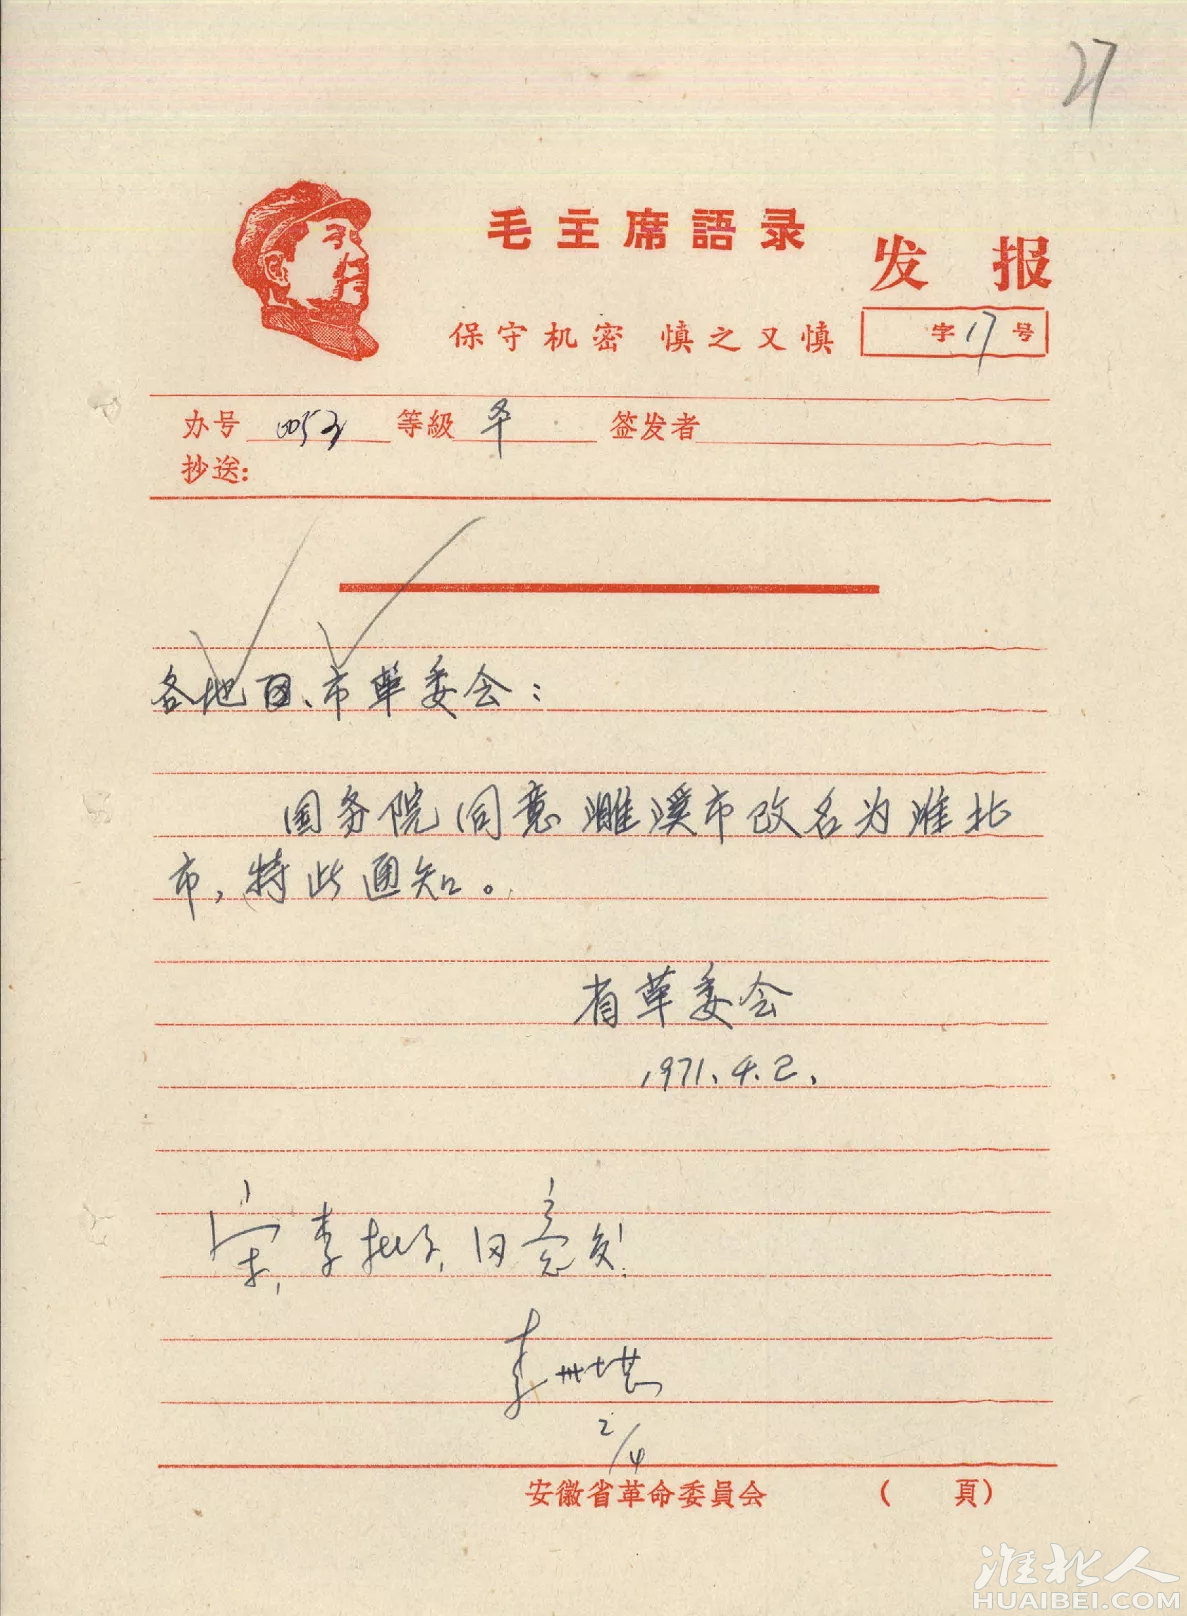 27
毛主席語录
发报
保守机密 慎之又慎
字17号
办号 0053 等級 签发者
抄送:
各地区、市革委会：
国务院同意濉溪市改名为淮北
市，特此通知。
省革委会
1971.4.2.
宋,李批了,同意发!
李
2/4
安徽省革命委員会 ( 頁)
淮北人
HUAIBEI.COM